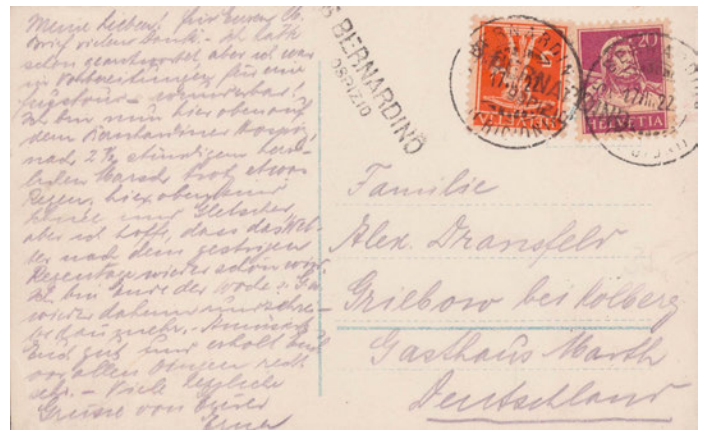 Meine Lieben! Für Euren lb.
Brief vielen Dank. - Ich hätte
schon geantwortet aber ich war
in Vorbereitungen für eine
- wunderbar!
Ich bin nun hier oben auf
dem Bernhardiner Hospiz,
nach 2 ½ stündigem herr-
lichen Marsch trotz etwas
Regen. hier oben
und Gletscher,
aber ich hoffe, dass das Wet-
ter nach dem gestrigen
Regentage wieder schön wird.
Ich bin Ende der Woche
wieder daheim und schrei-
be dann mehr. - Amüsiert
Euch gut und erholt Euch
vor allen Dingen recht
sehr. - Viele herzliche
Grüsse von Eurer
Erna
S. BERNARDINO
OSPIZIO
S. BERNARDINO
(TICINO)
HELVETIA
20
HELVETIA
Familie
Alex. Dransfeld
Griebow bei Kolberg
Gasthaus Marth
Deutschland